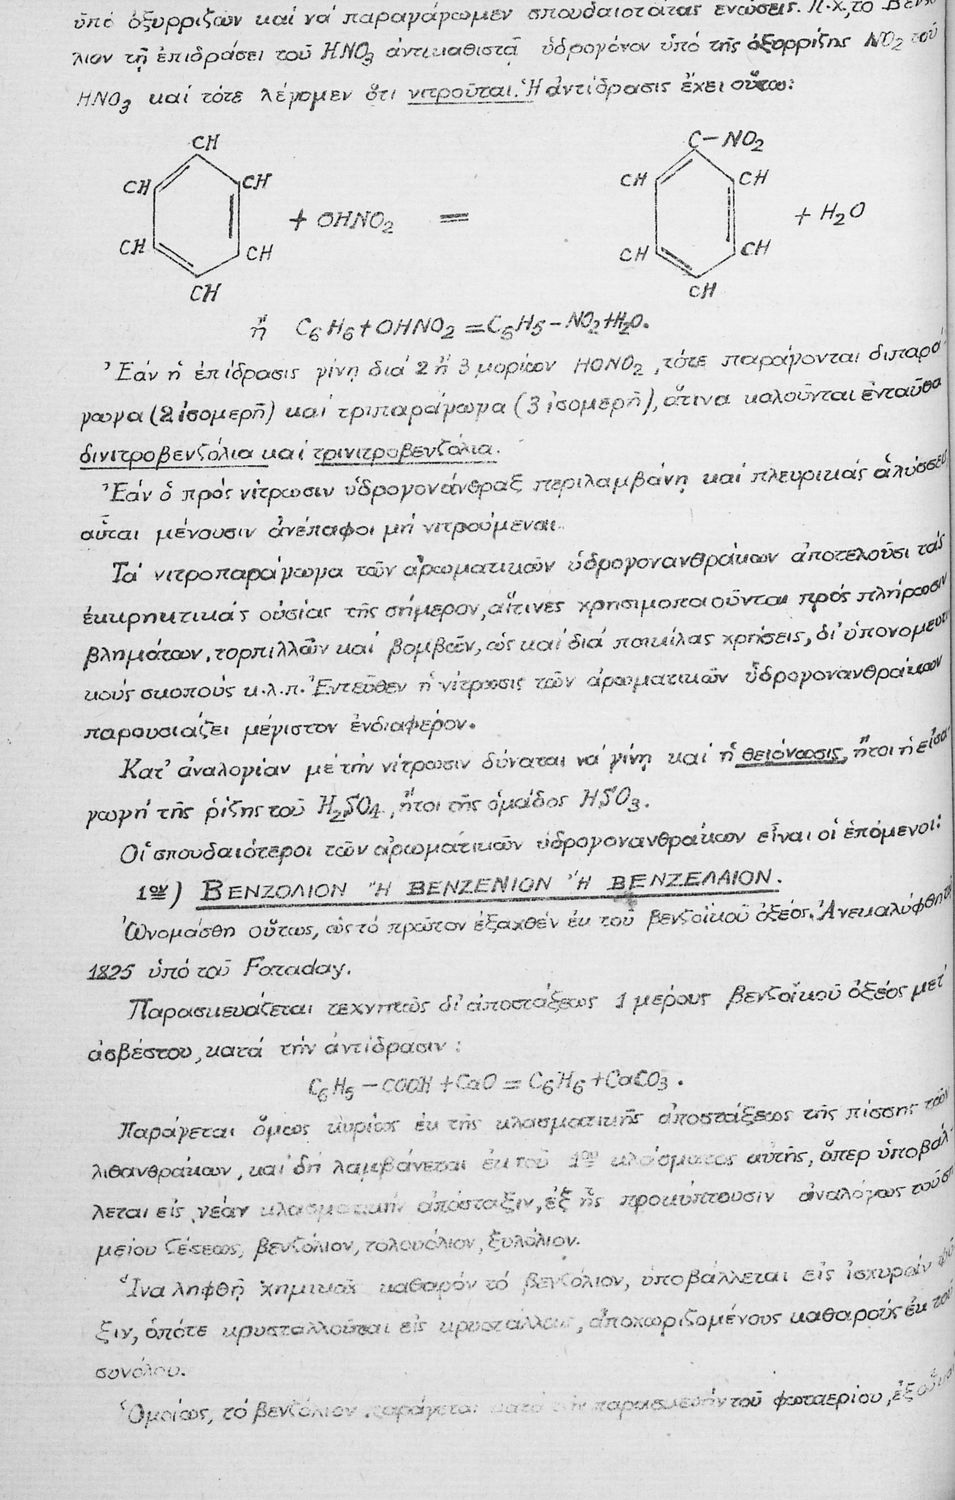 ὑπό ὀξυρριζῶν καί νά παραγάγωμεν σπουδαιοτάτας ἑνώσεις. Π.χ, τό Βενζό
λιον τῇ ἐπιδράσει τοῦ HNO3 ἀντικαθιστᾷ ὑδρογόνον ὑπό τῆς ὀξυρρίζης NO2 τοῦ
HNO3 καί τότε λέγομεν ὅτι νιτροῦται. Ἡ ἀντίδρασις ἔχει οὕτω:
CH C-NO2
CH CH CH CH
+ OHNO2 = + H2O
CH CH CH CH
CH CH
ἤ C6H6+OHNO2=C6H5-NO2+H2O.
Ἐάν ἡ ἐπίδρασις γίνῃ διά 2 ἤ 3 μορίων HONO2, τότε παράγονται διπαρά-
γωγα (2 ἰσομερῆ) καί τριπαράγωγα (3 ἰσομερῆ), ἅτινα καλοῦνται ἐνταῦθα
δινιτροβενζόλια καί τρινιτροβενζόλια.
Ἐάν ὁ πρός νίτρωσιν ὑδρογονάνθραξ περιλαμβάνῃ καί πλευρικάς ἁλύσσεις
αὗται μένουσιν ἀνέπαφοι μή νιτρούμεναι.
Τά νιτροπαράγωγα τῶν ἀρωματικῶν ὑδρογονανθράκων ἀποτελοῦσι τάς
ἐκρηκτικάς οὐσίας τῆς σήμερον, αἵτινες χρησιμοποιοῦνται πρός πλήρωσιν
βλημάτων, τορπιλλῶν καί βομβῶν, ὡς καί διά ποικίλας χρήσεις, δι' ὑπονομευτι
κούς σκοπούς κ.λ.π. Ἐντεῦθεν ἡ νίτρωσις τῶν ἀρωματικῶν ὑδρογονανθράκων
παρουσιάζει μέγιστον ἐνδιαφέρον.
Κατ' ἀναλογίαν μέ τήν νίτρωσιν δύναται νά γίνῃ καί ἡ θειόνωσις, ἤτοι ἡ εἰσα-
γωγή τῆς ρίζης τοῦ H2SO4, ἤτοι τῆς ὁμάδος HSO3.
Οἱ σπουδαιότεροι τῶν ἀρωματικῶν ὑδρογονανθράκων εἶναι οἱ ἑπόμενοι:
1ον) ΒΕΝΖΟΛΙΟΝ Ἤ ΒΕΝΖΕΝΙΟΝ Ἤ ΒΕΝΖΕΛΑΙΟΝ.
Ὠνομάσθη οὕτως, ὡς τό πρῶτον ἐξαχθέν ἐκ τοῦ βενζοϊκοῦ ὀξέος. Ἀνεκαλύφθη τό
1825 ὑπό τοῦ Faraday.
Παρασκευάζεται τεχνητῶς δι' ἀποστάξεως 1 μέρους βενζοϊκοῦ ὀξέος μετ'
ἀσβέστου, κατά τήν ἀντίδρασιν:
C6H5-COOH+CaO=C6H6+CaCO3.
Παράγεται ὅμως κυρίως ἐκ τῆς κλασματικῆς ἀποστάξεως τῆς πίσσης τῶν
λιθανθράκων, καί δή λαμβάνεται ἐκ τοῦ 1ου κλάσματος αὐτῆς, ὅπερ ὑποβάλ-
λεται εἰς νέαν κλασματικήν ἀπόσταξιν, ἐξ ἧς προκύπτουσιν ἀναλόγως τοῦ ση
μείου ζέσεως, βενζόλιον, τολουόλιον, ξυλόλιον.
Ἵνα ληφθῇ χημικῶς καθαρόν τό βενζόλιον, ὑποβάλλεται εἰς ἰσχυράν ψῦ
ξιν, ὁπότε κρυσταλλοῦται εἰς κρυστάλλους, ἀποχωριζομένους καθαρούς ἐκ τοῦ
συνόλου.
Ὁμοίως, τό βενζόλιον παράγεται κατά τήν παρασκευήν τοῦ φωταερίου, ἐξ οὗ